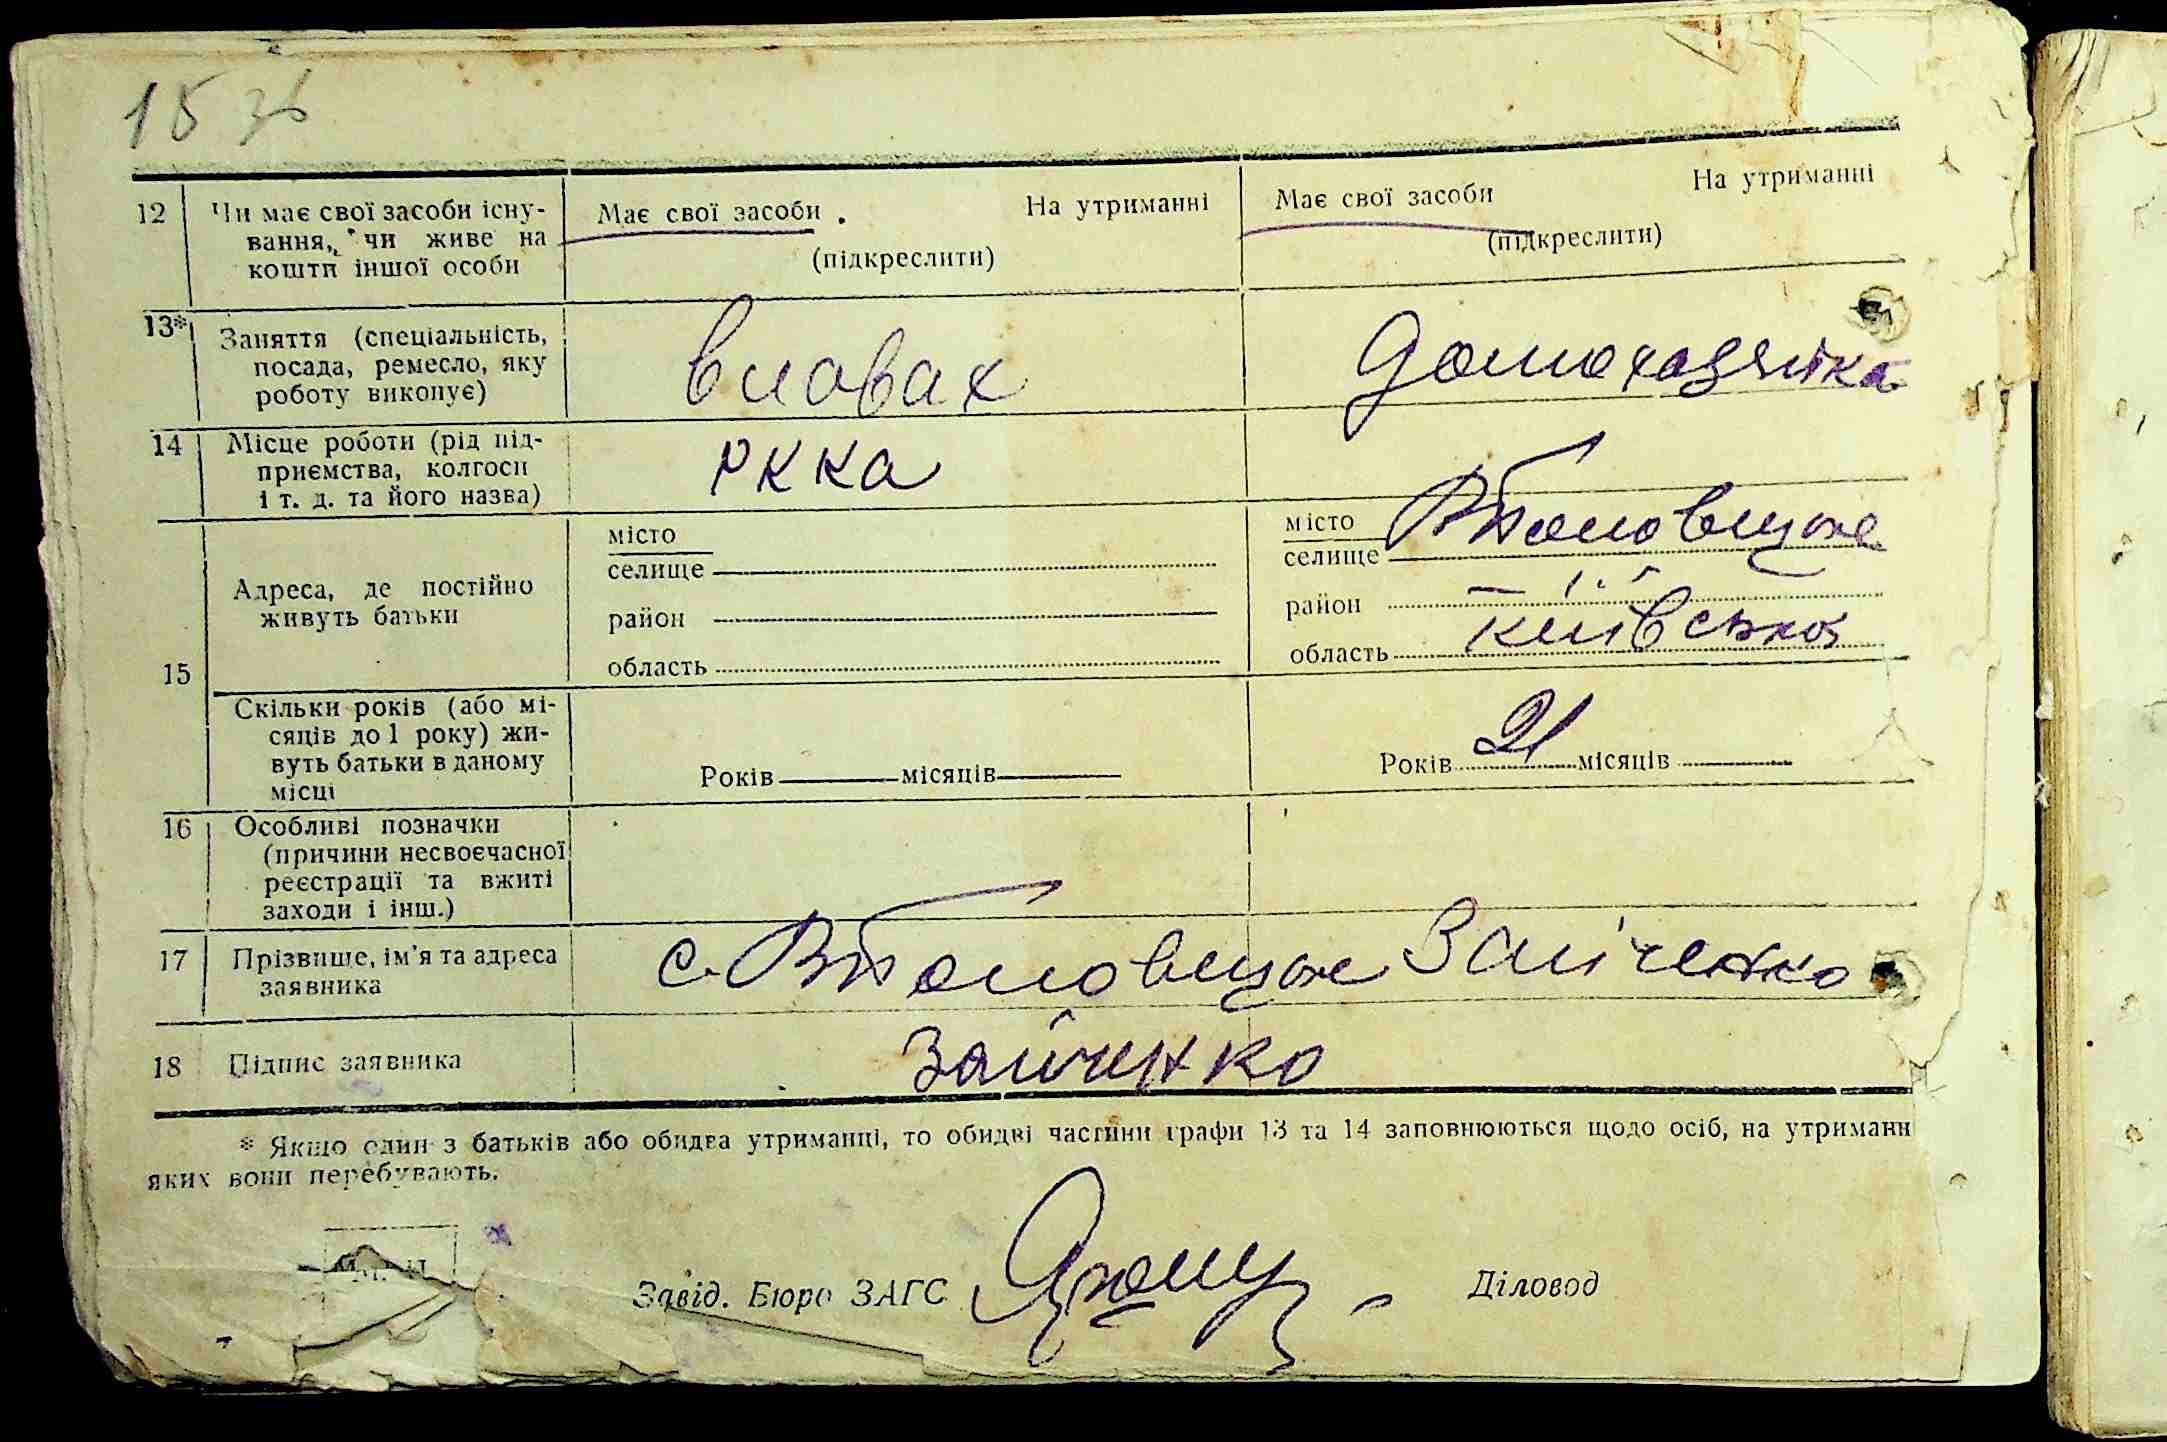 15 зв
12 Чи має свої засоби існу- Має свої засоби . На утриманні Має свої засоби На утриманні
вання, чи живе на
кошти іншої особи (підкреслити) (підкреслити)
13* Заняття (спеціальність,
посада, ремесло, яку в лавах Домохазяйка
роботу виконує)
14 Місце роботи (рід під-
приємства, колгосп РККА
і т. д. та його назва)
15 Адреса, де постійно
живуть батьки
місто
селище
район
область
місто
селище
район
область Київська
Скільки років (або мі-
сяців до 1 року) жи-
вуть батьки в даному Років місяців Років 21 місяців
місці
16 Особливі позначки
(причини несвоєчасної
реєстрації та вжиті
заходи і інш.)
17 Прізвище, ім'я та адреса с. Зайченко
заявника
18 Підпис заявника Зайченко
* Якщо один з батьків або обидва утриманці, то обидві частини графи 13 та 14 заповнюються щодо осіб, на утриманн
яких вони перебувають.
Завід. Бюро ЗАГС Діловод